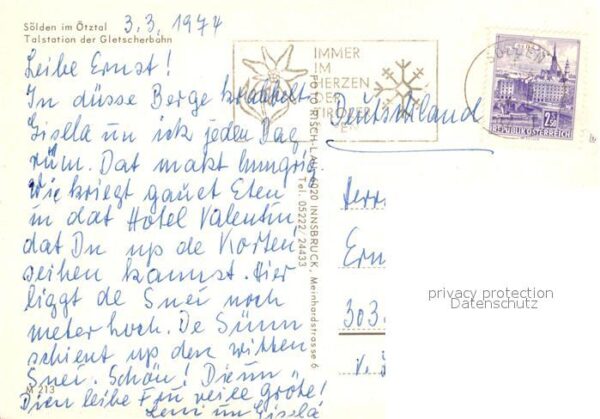 Sölden im Ötztal
Talstation der Gletscherbahn
3.3.1974
Leibe Ernst!
In düsse Berge krabbelt
Gisela un ick jeden Dag
rüm. Dat makt hungrig.
Wie kriegt gauet Eten
in dat Hotel Valentin
dat Du up de Korten
seihen kannst. Hier
liggt de Snei noch
meter hoch. De Sünn
schient up den witten
Snei. Schön! Die un
Dien leibe Fru veile gröte!
Leni un Gisela
M 213
FOTO RISCH-LAU, 6020 INNSBRUCK, Meinhardstrasse 6
Tel. 05222/24433
IMMER
IM
HERZEN
DER
TIROLER
SÖLDEN
REPUBLIK ÖSTERREICH
2.50
Deutschland
Herrn
Ern
303
privacy protection
Datenschutz